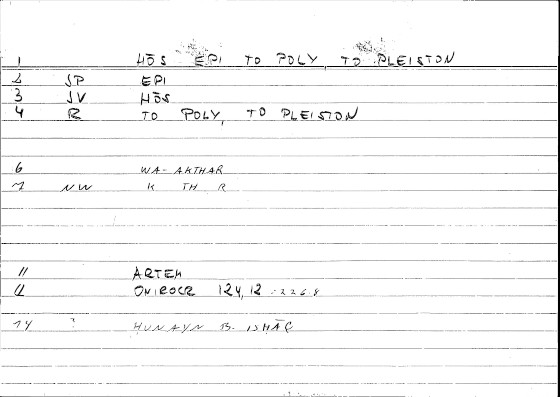 1 HŌS EPI TO POLY, TO PLEISTON
2 SP EPI
3 SV HŌS
4 R TO POLY, TO PLEISTON
6 WA-AKTHAR
7 NW K TH R
11 ARTEM
12 ONIROCR 124,12 :2268
14 ? HUNAYN B. ISHĀQ